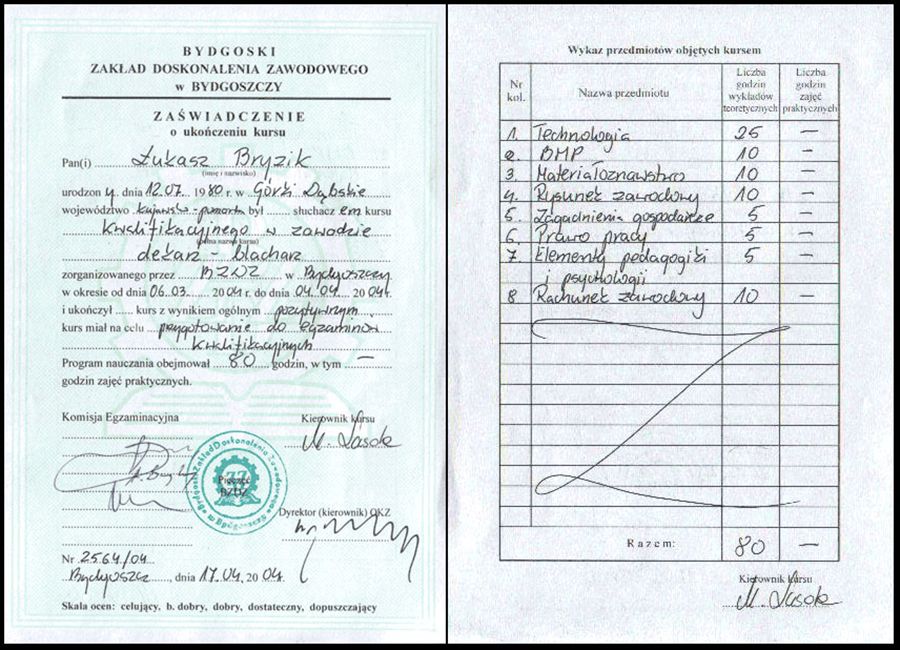 BYDGOSKI
ZAKŁAD DOSKONALENIA ZAWODOWEGO
w BYDGOSZCZY
ZAŚWIADCZENIE
o ukończeniu kursu
Pan(i) Łukasz Bryzik
(imię i nazwisko)
urodzony dnia 12.07. 1980 r. w Górki Dąbskie
województwo kujawsko-pomorsk był słuchaczem kursu
kwalifikacyjnego w zawodzie
(pełna nazwa kursu)
dekarz - blacharz
zorganizowanego przez BZDZ w Bydgoszczy
w okresie od dnia 06.03. 2004 r. do dnia 04.04. 2004 r.
i ukończył kurs z wynikiem ogólnym pozytywnym
kurs miał na celu przygotowanie do egzaminów
kwalifikacyjnych
Program nauczania obejmował 80 godzin, w tym —
godzin zajęć praktycznych.
Komisja Egzaminacyjna
Kierownik kursu
M. Sasak
Bydgoski Zakład Doskonalenia Zawodowego w Bydgoszczy
Pieczęć
BZDZ
Dyrektor (kierownik) OKZ
Nr 2564/04
Bydgoszcz, dnia 17.04. 2004.
Skala ocen: celujący, b. dobry, dobry, dostateczny, dopuszczający
Wykaz przedmiotów objętych kursem
Nr kol. Nazwa przedmiotu Liczba godzin wykładów teoretycznych Liczba godzin zajęć praktycznych
1. Technologia 25 —
2. BHP 10 —
3. Materiałoznawstwo 10 —
4. Rysunek zawodowy 10 —
5. Zagadnienia gospodarcze 5 —
6. Prawo pracy 5 —
7. Elementy pedagogiki 5 —
i psychologii
8 Rachunek zawodowy 10 —
Razem: 80 —
Kierownik kursu
M. Sasak